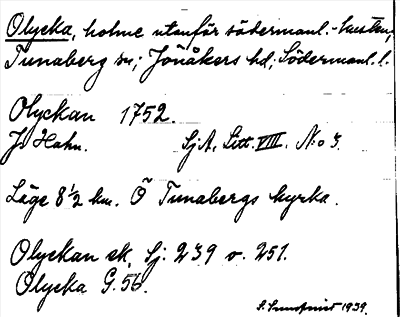 Olycka, holme utanför södermanl.-kusten,
Tunaberg sn; Jönåkers hd; Södermanl. l.
Olyckan 1752.
J. Hahn. SjA. Litt. VIII. No 3.
Läge 8 1/2 km. Ö Tunabergs kyrka.
Olyckan sk. Sj: 239 o. 251.
Olycka G. 56.
S. Sundqvist 1939.